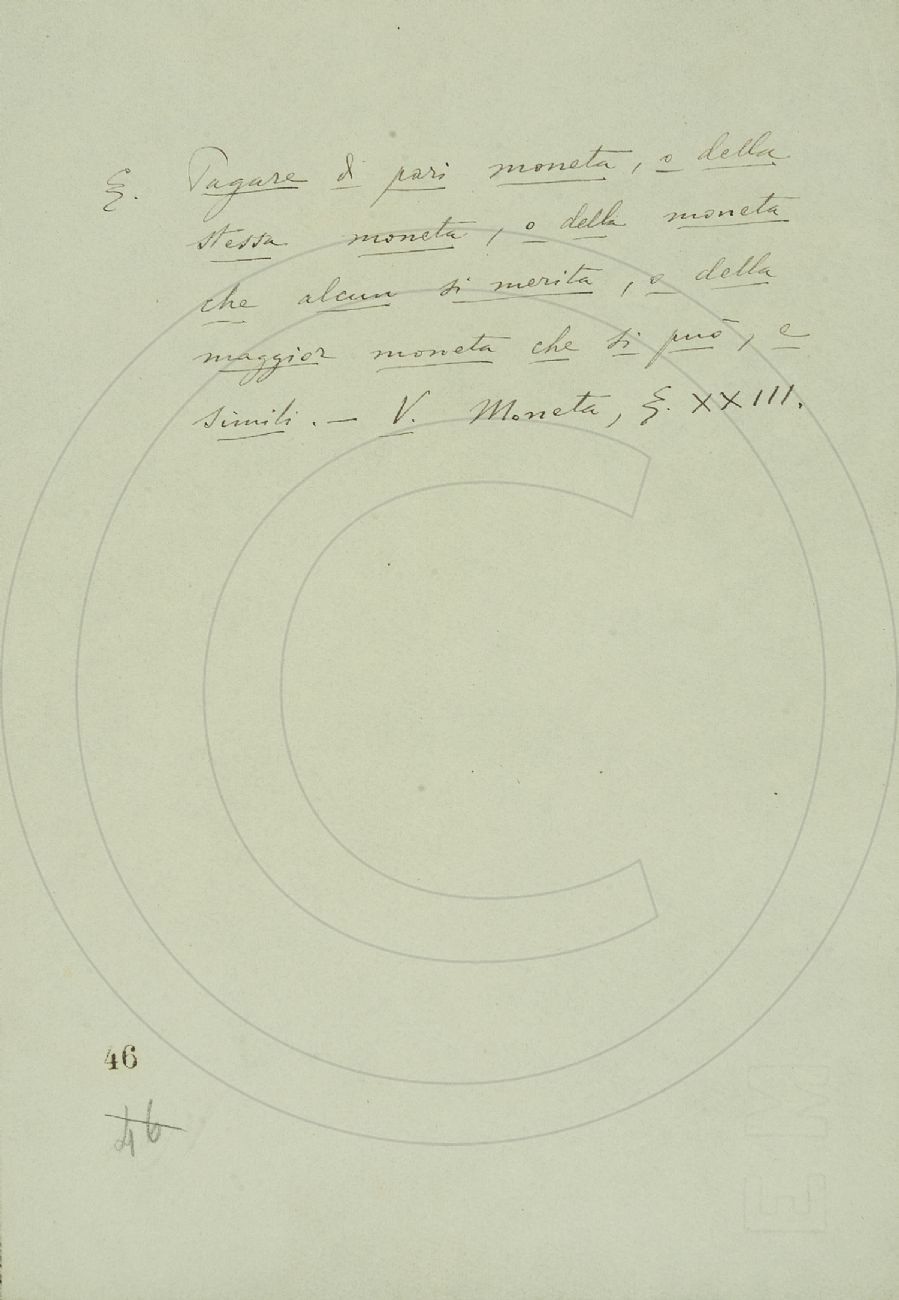 §. Pagare di pari moneta, o della
stessa moneta, o della moneta
che alcun si merita, o della
maggior moneta che si può, e
simili. — V. Moneta, §. XXIII.
46
46